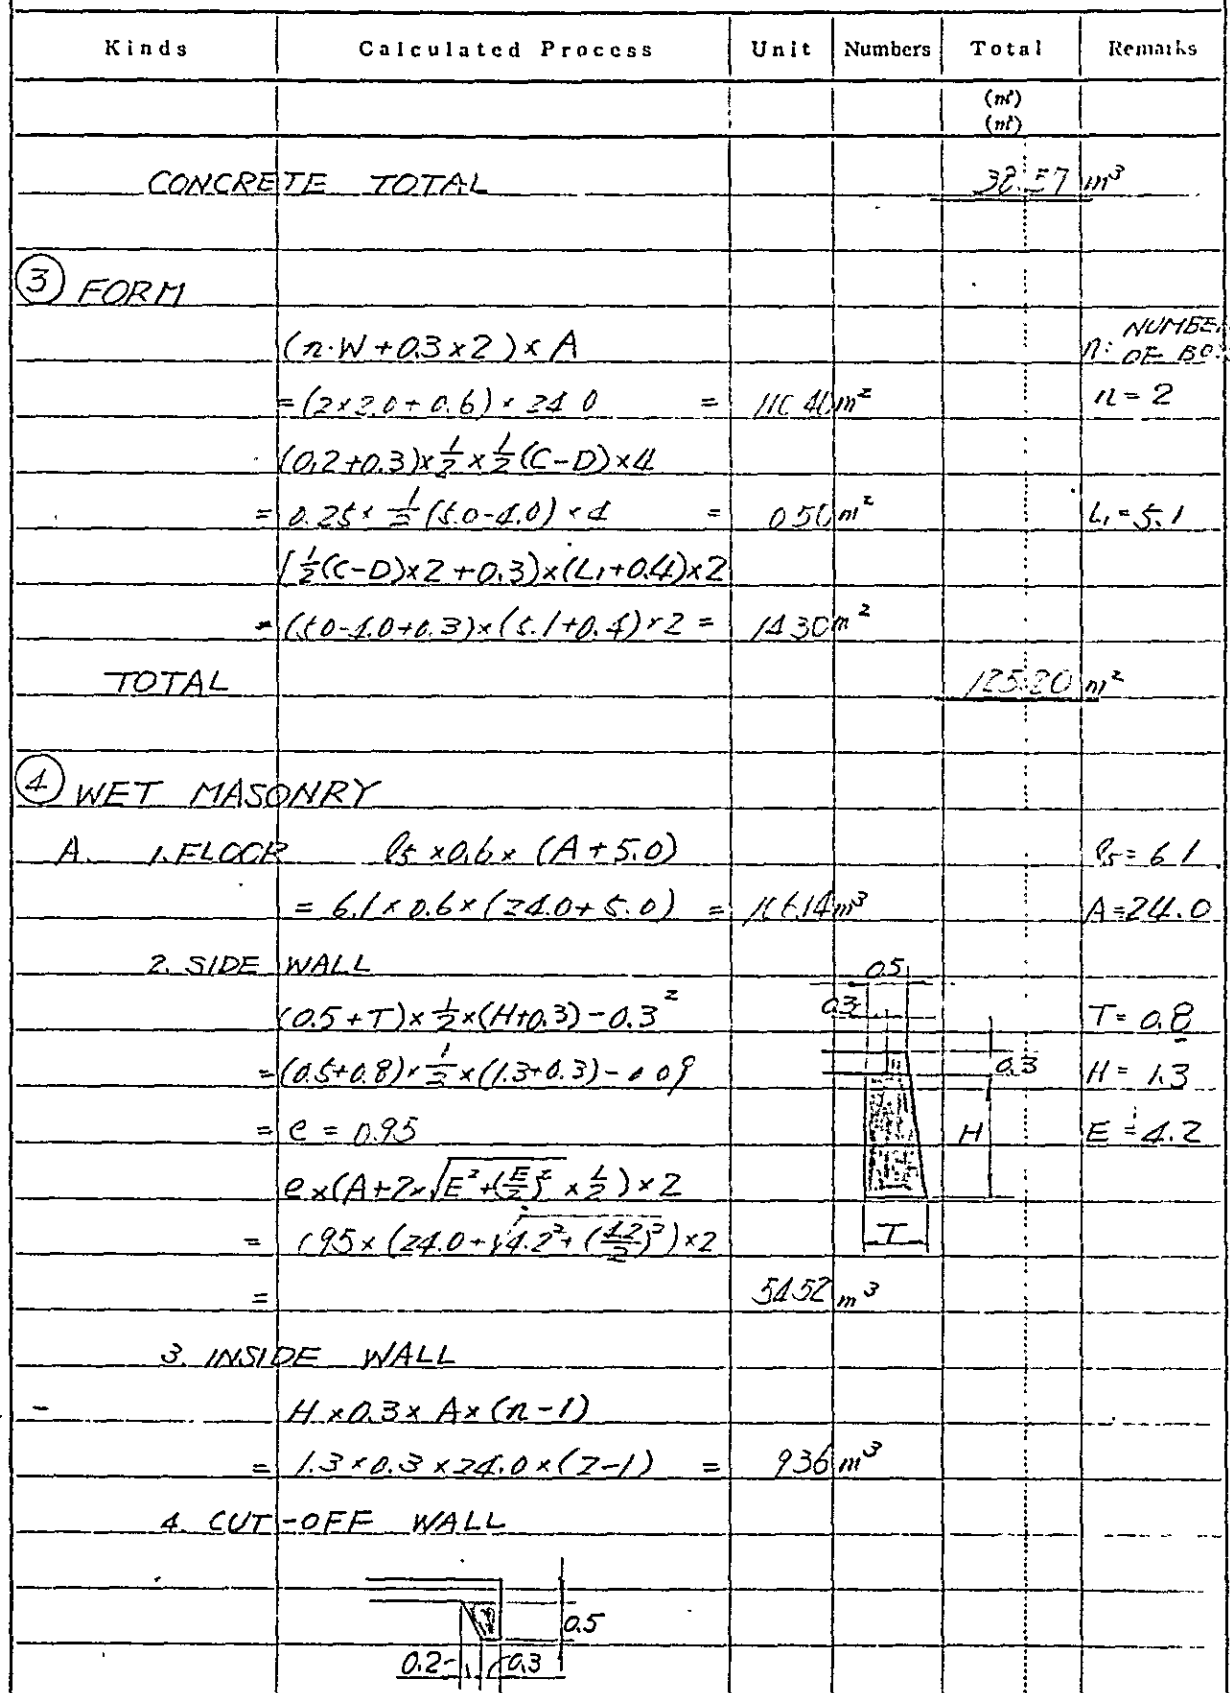 Kinds Calculated Process Unit Numbers Total Remarks
(m²)
(m³)
CONCRETE TOTAL 38.57 m³
③ FORM
(n·W+0.3×2)×A n: NUMBER OF BO
=(2×2.0+0.6)×24.0 = 110.40 m² n=2
(0.2+0.3)×1/2×1/2(C-D)×4
= 0.25×1/2(5.0-4.0)×4 = 0.50 m² L₁=5.1
{1/2(C-D)×2+0.3}×(L₁+0.4)×2
=(5.0-4.0+0.3)×(5.1+0.4)×2 = 14.30 m²
TOTAL 125.20 m²
④ WET MASONRY
A. 1. FLOOR ℓ₅×0.6×(A+5.0) ℓ₅=6.1
= 6.1×0.6×(24.0+5.0) = 106.14 m³ A=24.0
2. SIDE WALL 0.5
(0.5+T)×1/2×(H+0.3)-0.3² 0.3 T=0.8
=(0.5+0.8)×1/2×(1.3+0.3)-0.09 0.3 H=1.3
= e = 0.95 H E=4.2
e×(A+2×√E²+(E/2)²×1/2)×2
= 0.95×(24.0+√4.2²+(4.2/2)²)×2 T
= 54.52 m³
3. INSIDE WALL
H×0.3×A×(n-1)
= 1.3×0.3×24.0×(2-1) = 9.36 m³
4. CUT-OFF WALL
0.5
0.2 0.3